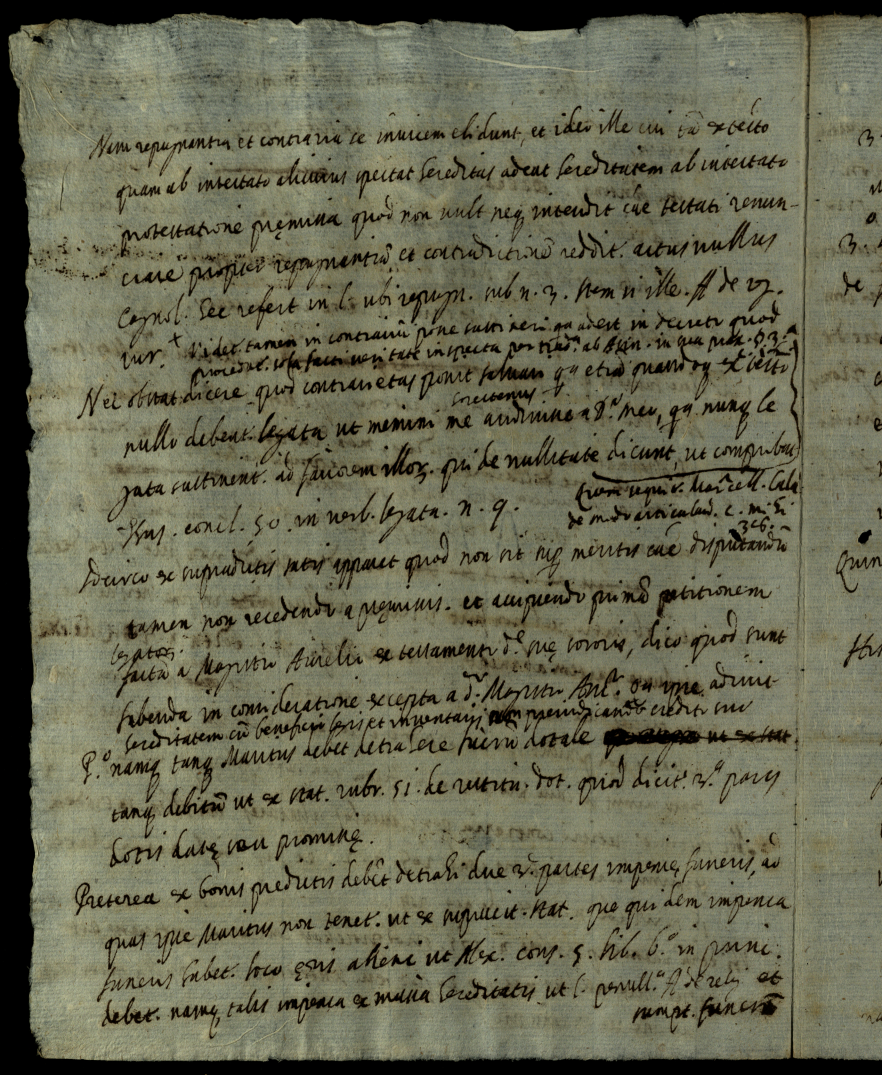 Nam repugnantia et contraria se invicem elidunt, et ideo ille cui tã ex testo
quam ab intestato alicuius spectat hereditas adeat hereditatem ab intestato
protestatione pręmissa quod non vult neq intendit cãe testati renun-
ciare propter repugnantiã et contradictionẽ reddit. actus nullus
Cagnol. hec refert in l. ubi repugn. sub n. 3. item si ille. ff de rg.
iur. + Videt. tamen in contrariũ posse sustineri qa adest in decreto quod
procedat. sola facti veritate inspecta
Nec obstat dicere quod contrarietas ponit etiã quando ex testo
sorvitemus
nullo debent. legata ut memini me audivisse a D. meo, qa nunq le
gata sustinent. ad favorem illoȝ. qui de nullitate dicunt, ut
concl. 50. in verb. legata. n. 9.
Quem sequit. Marcell. Cala
de m.do articuland. c. m. hi
366.
Idcirco ex supradictis satis apparet quod non sit sup meritis cãe disputandũ
tamen non recedendo a pręmissis. et accipiendo primã petitionem
legatoȝ.
factã a Magistro Aurelio ex testamento d. suę sororis, dico quod sunt
habenda in consideratione excepta a d. Magistro Ant. qa ipse adivit
hereditatem cũ beneficio legis et inventarij preiudicando credito suo
P.o namq tanq Maritus debet detrahere lucrũ dotale ut ex stat.
tanq debitũ ut ex stat. rubr. 51. de restitu. dot. quod dicit. 3.a pars
dotis datę seu promissę.
Preterea ex bonis predictis debẽt detrahi due 3. partes impensę funeris, ad
quas ipse Maritus non tenet. ut ex supracit. stat. que quidem impensa
funeris habet. loco ęris alieni ut Alex. cons. 5. lib. 6.o in princ.
debet. namq talis impensa ex massa hereditatis ut l. penult. ff de relig. et
sumpt. funerũ